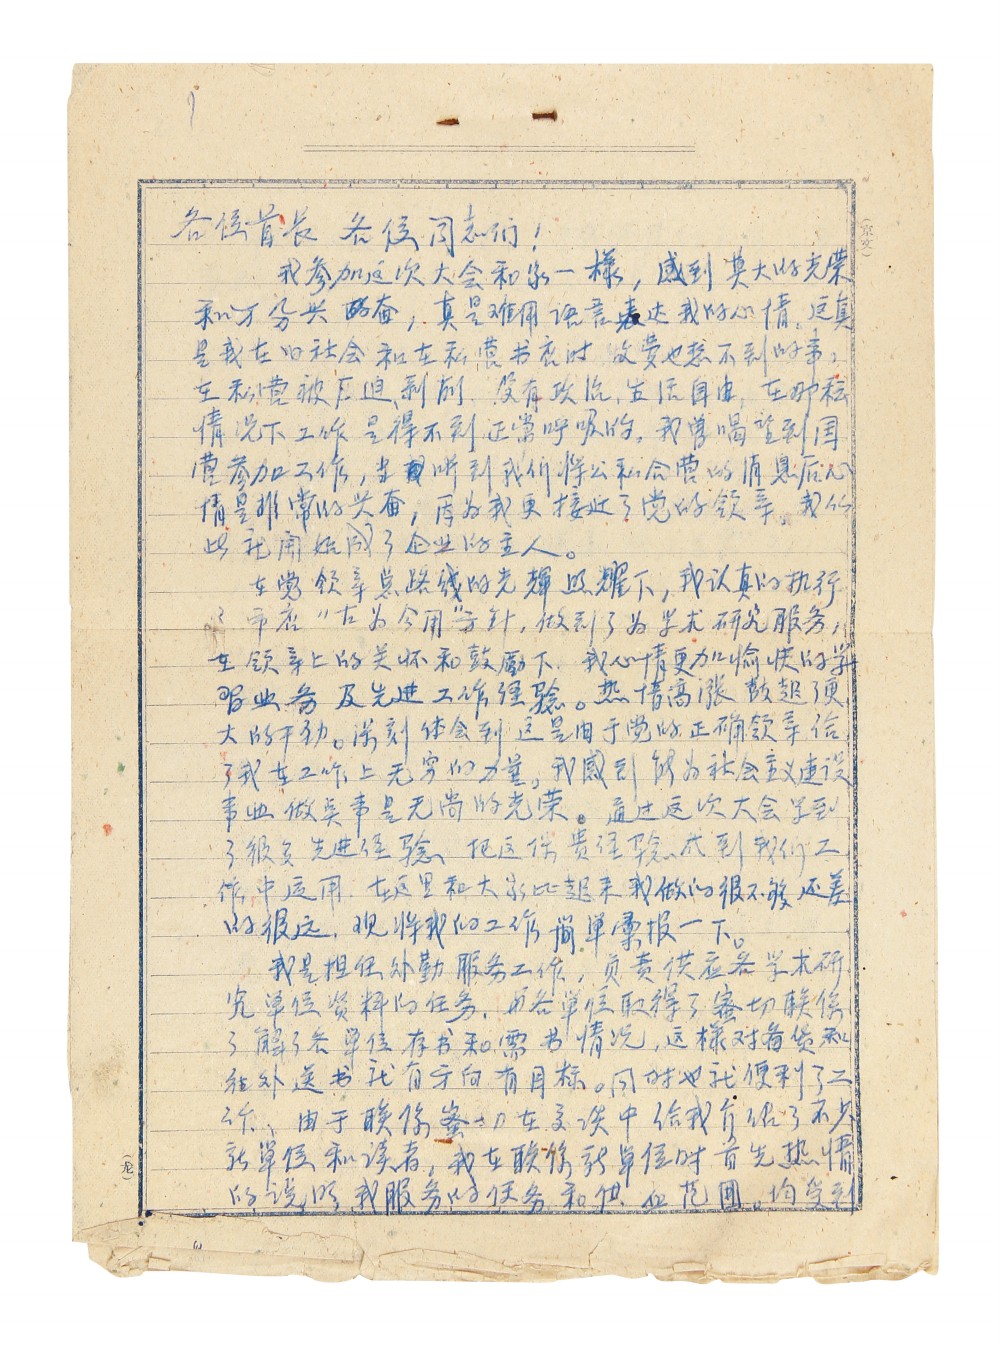 各位首长 各位同志们！
我参加这次大会和大家一样，感到莫大的光荣
和万分兴奋，真是难用语言表达我的心情。这真
是我在旧社会和在私营书店时做梦也想不到的事，
在私营被压迫剥削，没有政治、生活自由，在那种
情况下工作是得不到正常呼吸的，我曾喝望到国
营参加工作，当听到我们将公私合营的消息后心
情是非常的兴奋，因为我更接近了党的领导，我们
此就开始成了企业的主人。
在党领导总路线的光辉照耀下，我认真的执行
了市店"古为今用"方针，做到了为学术研究服务，
在领导上的关怀和鼓励下，我心情更加愉快的学
习业务及先进工作经验。热情高涨鼓起了更
大的干劲。深刻体会到这是由于党的正确领导给
了我在工作上无穷的力量，我感到能为社会主义建设
事业做点事是无尚的光荣。通过这次大会学到
了很多先进经验，把这保贵经验感到我们工
作中运用，在这里和大家比起来我做的很不够还差
的很远，现将我的工作简单彙报一下。
我是担任外勤服务工作，负责供应各学术研
究单位资料的任务，与各单位取得了密切联係
了解了各单位存书和需书情况，这样对备货和
往外送书就有方向有目标。同时也就便利了工
作、由于联係密切在交谈中给我介绍了不少
新单位和读者，我在联係新单位时首先热情
的说明我服务的任务和供应范围。均受到
(京文)
(龙)